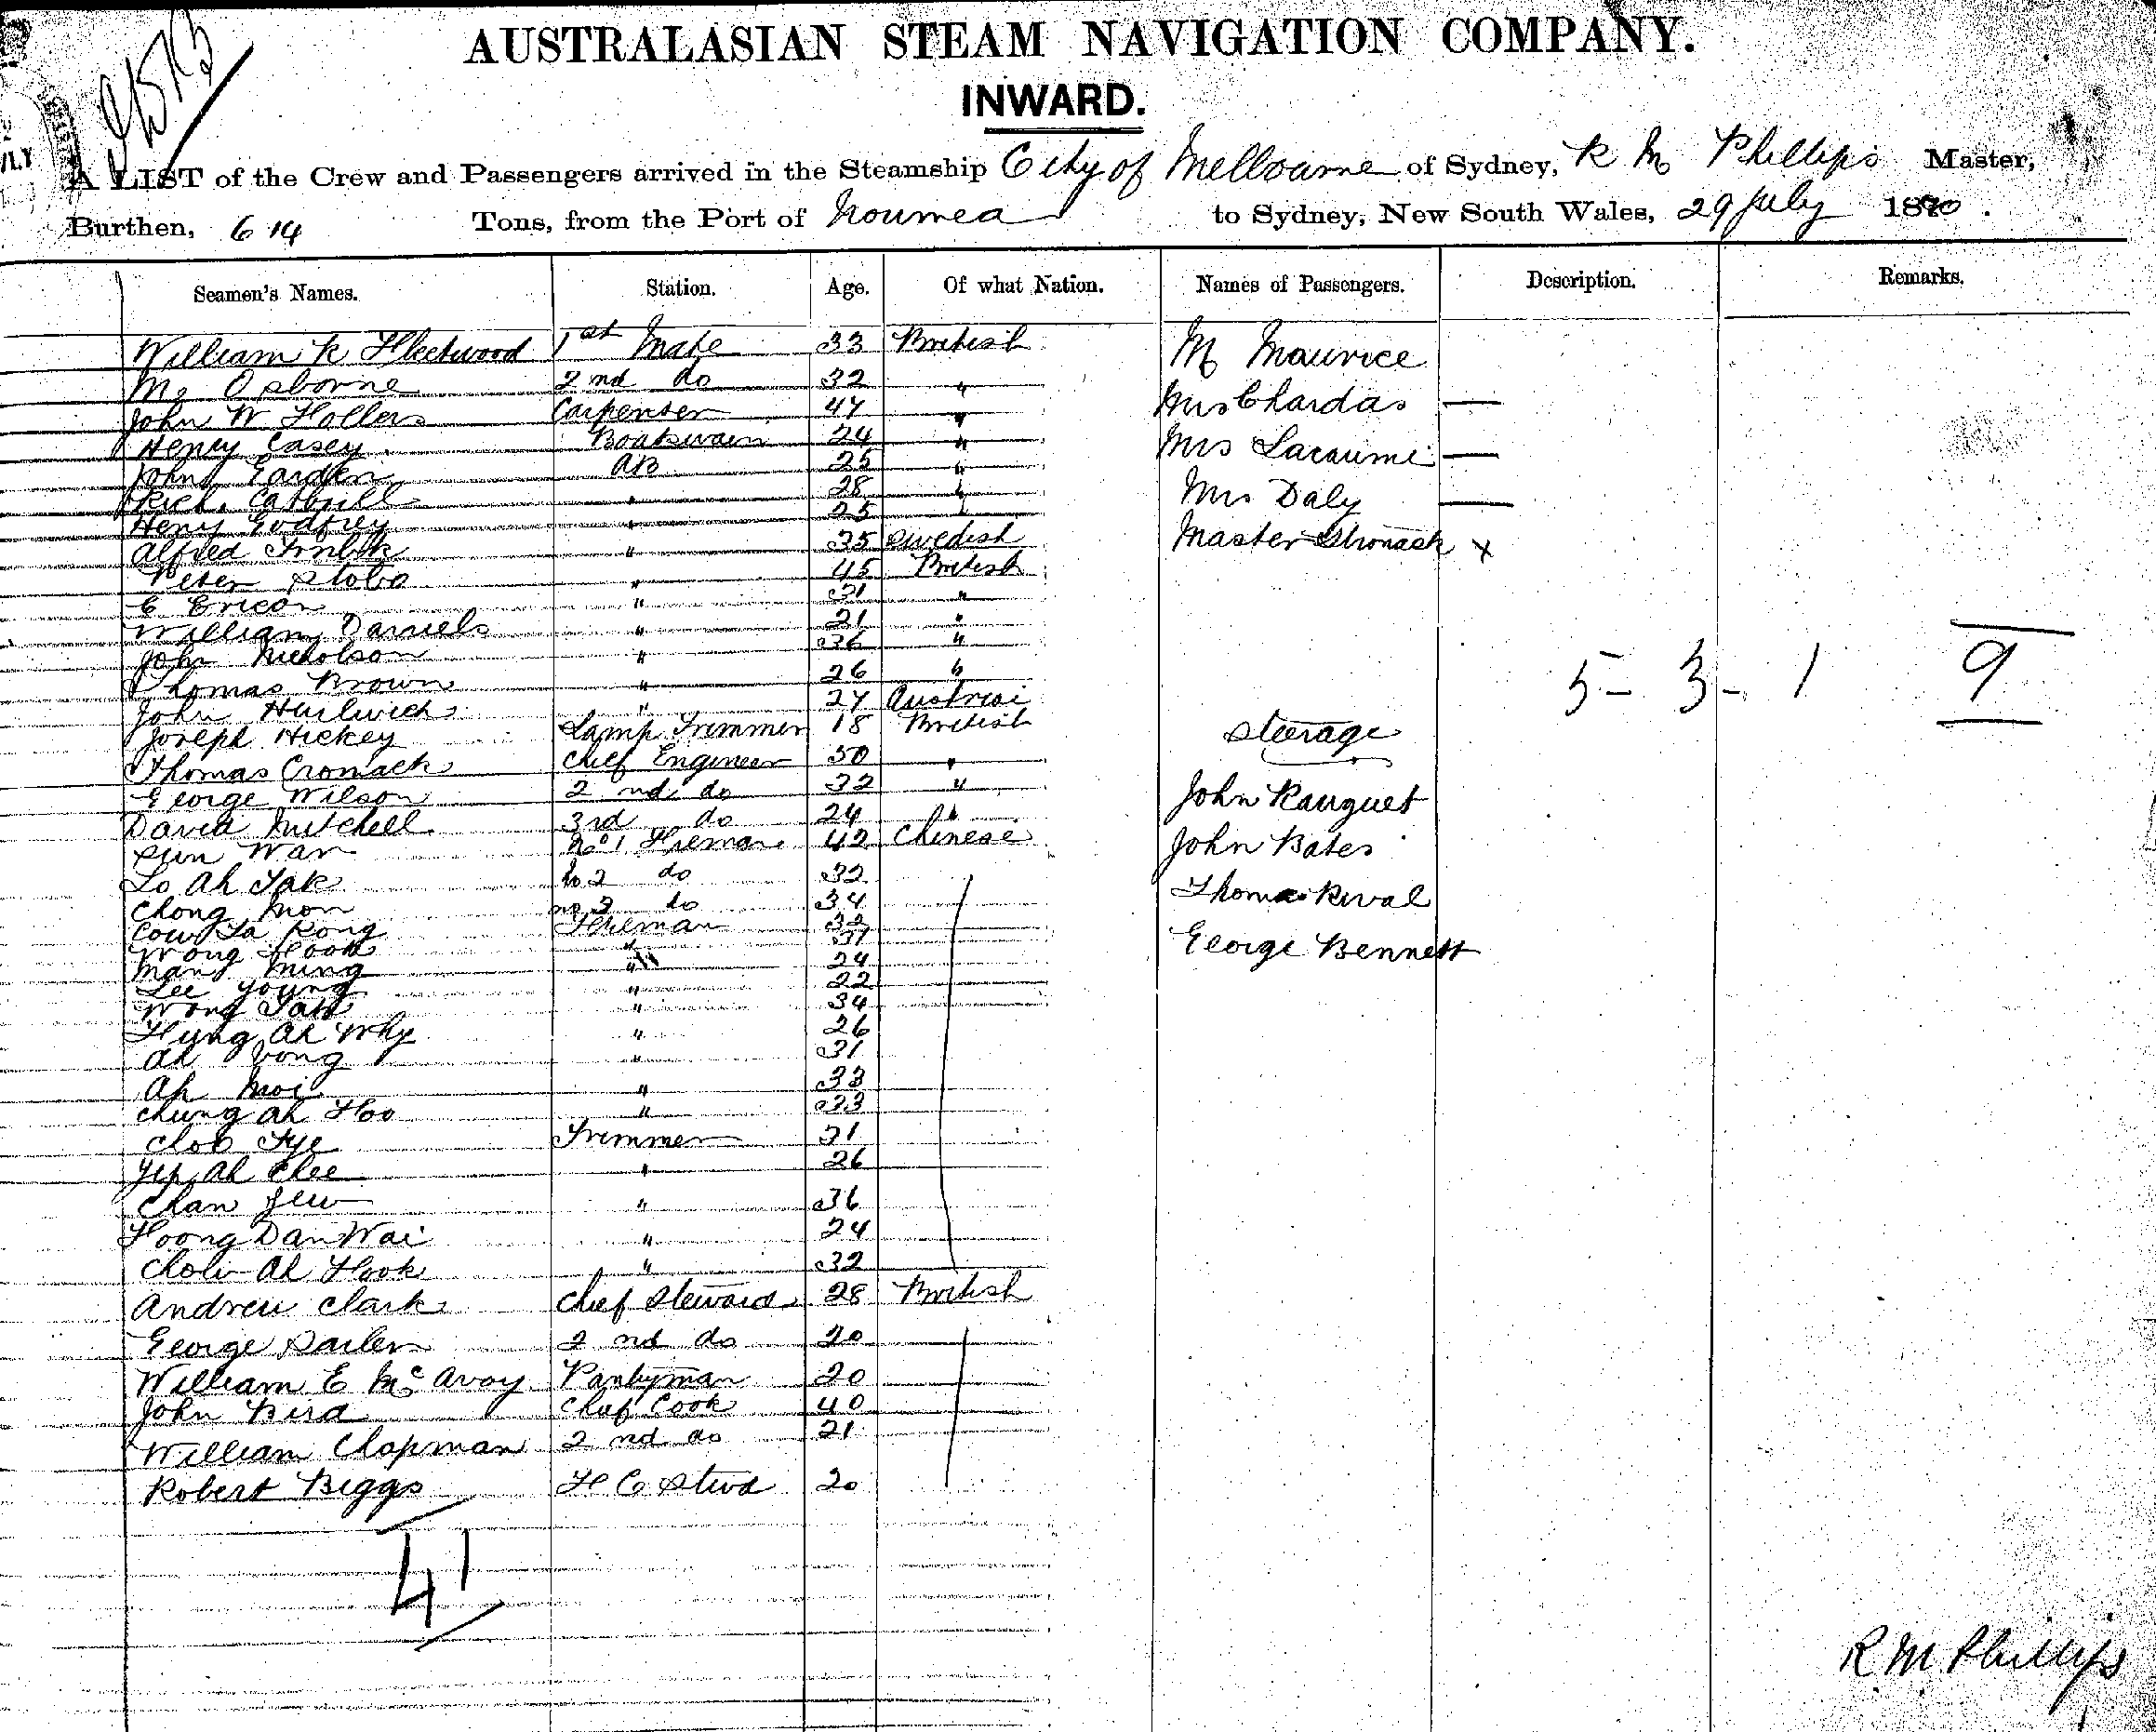 AUSTRALASIAN STEAM NAVIGATION COMPANY.
INWARD.
A LIST of the Crew and Passengers arrived in the Steamship City of Melbourne of Sydney, R M Phillips Master,
Burthen, 614 Tons, from the Port of Noumea to Sydney, New South Wales, 29 July 1880.
Seamen's Names. Station. Age. Of what Nation. Names of Passengers. Description. Remarks.
William R Fleetwood 1st Mate 33 British M Maurice
Osborne 2nd do 32 " Mrs Chardas —
John W Hollers Carpenter 47 " Mrs Lacaume —
Henry Casey Boatswain 24 " Mrs Daly —
John AB 25 " Master Stronack x
Rich. 28 "
Heny Godfrey " 25 "
Alfred " 35 Swedish
Peter Stobo " 45 British
E Ericon " 31 "
William Daniels " 21 "
John Nicholson " 36 " 5 - 3 - 1 9
Thomas Brown " 26 "
John " 27 Austrian
Joseph Hickey Lamp Trimmer 18 British Steerage
Thomas Cromack Chief Engineer 50 "
George Wilson 2nd do 32 " John Rauguet
David Mitchell 3rd do 24 "
Sun War No 1 Fireman 42 Chinese John Bates
Lo Ah Tak No 2 do 32
Chong Mon No 3 do 34 Thomas Rival
Cow Ta Kong Fireman 32
Wong Hook " 31 George Bennett
Mang Ming " 24
Lee Young " 22
Wong " 34
Hung Ah Why " 26
Ah Vong " 31
Ah Moi " 33
Chung Ah Hoo " 33
Chob Tye Trimmer 31
Yip Ah Chee " 26
Chan Jew " 36
Hoong Dan Wai " 24
Ah Hook " 32
Andrew Clark Chief Steward 28 British
George Sailen 2nd do 20
William E McAvoy Pantryman 20
John Bird Chief Cook 40
William Chapman 2nd do 21
Robert Biggs F C Stwd 20
41
R M Phillips